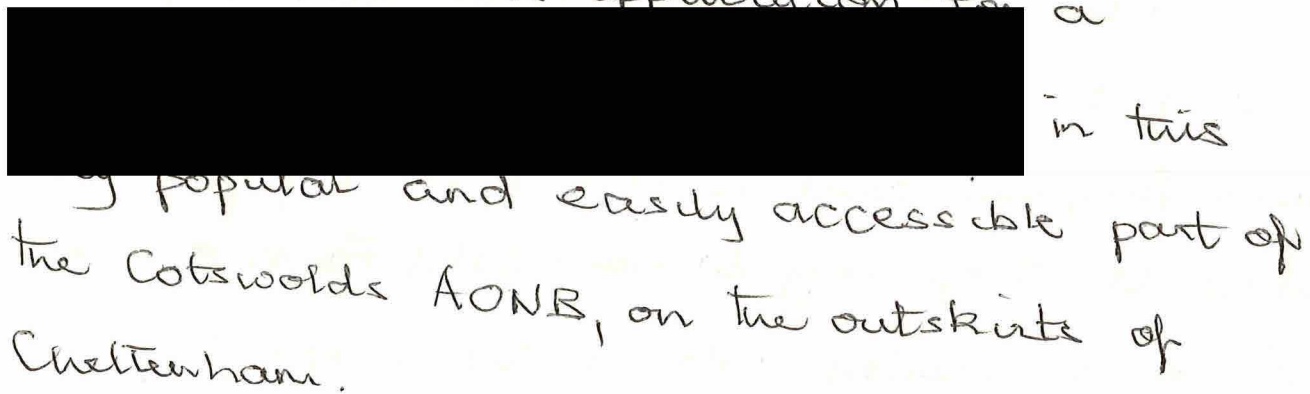 a
in this
popular and easily accessible part of
the Cotswolds AONB, on the outskirts of
Cheltenham.